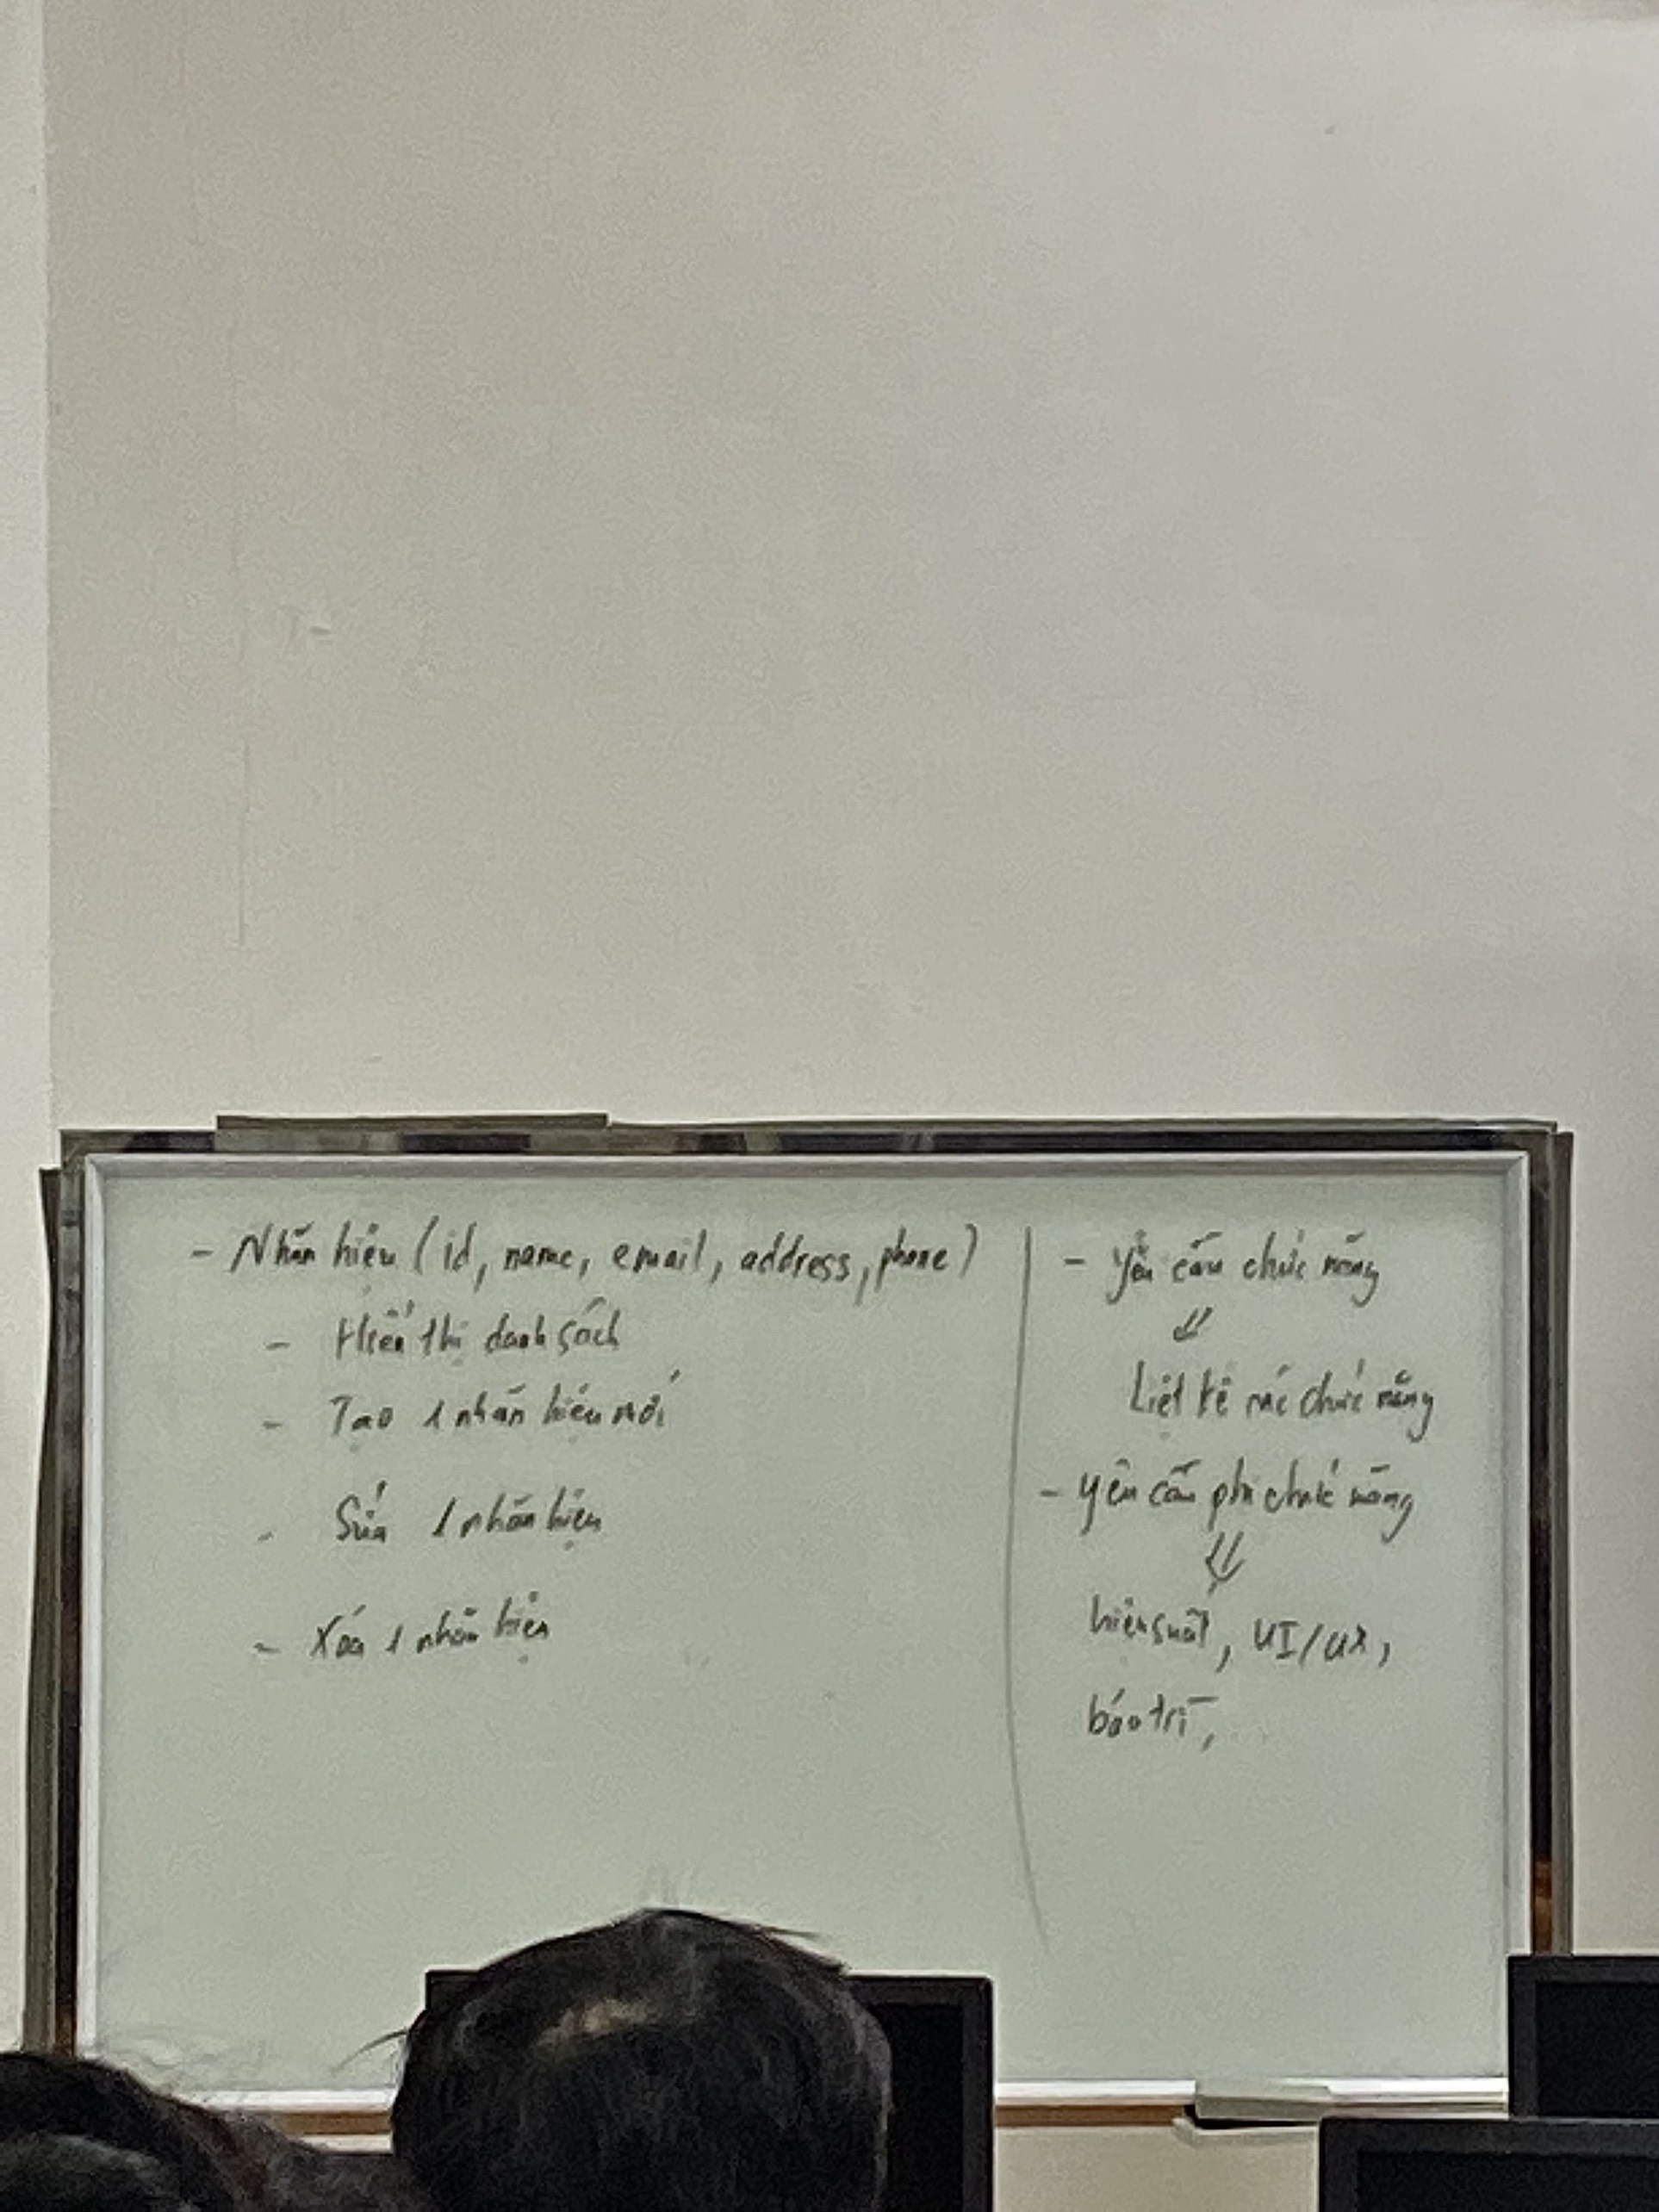 - Nhãn hiệu (id, name, email, address, phone)
- Hiển thị danh sách
- Tạo 1 nhãn hiệu mới
- Sửa 1 nhãn hiệu
- Xóa 1 nhãn hiệu
- Yêu cầu chức năng
⇓
Liệt kê các chức năng
- Yêu cầu phi chức năng
⇓
hiệu suất, UI/UX,
bảo trì, ...